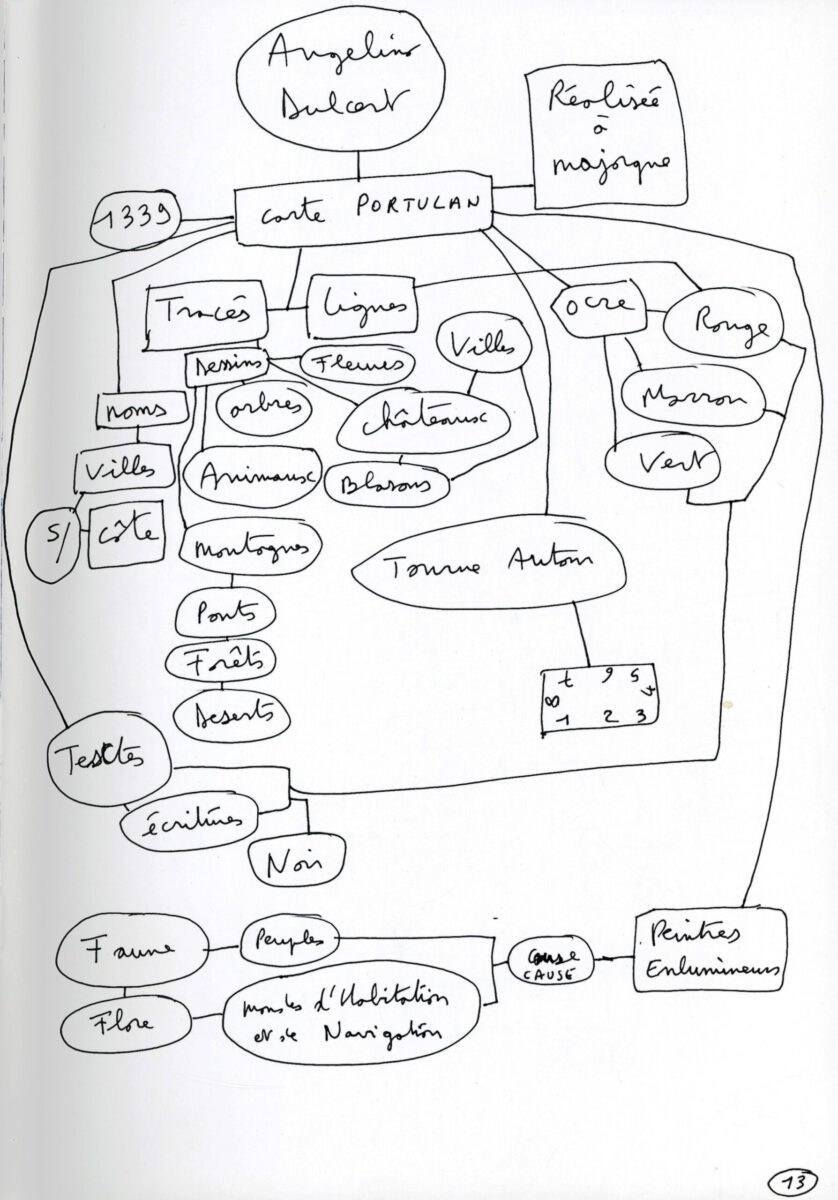 Angelino
Dulcert
Réalisée
à
majorque
1339
carte PORTULAN
Tracés
Lignes
OCRE
Rouge
Villes
Dessins
Fleuves
arbres
châteaux
Marron
noms
Villes
Animaux
Blasons
Vert
S/
côte
montagnes
Tourne Autour
Ponts
Forêts
Deserts
8
1 2 3
Textes
écritures
Noir
Faune
Peuples
CAUSE
Peintres
Enlumineurs
Flore
d'Habitation
et de Navigation
13